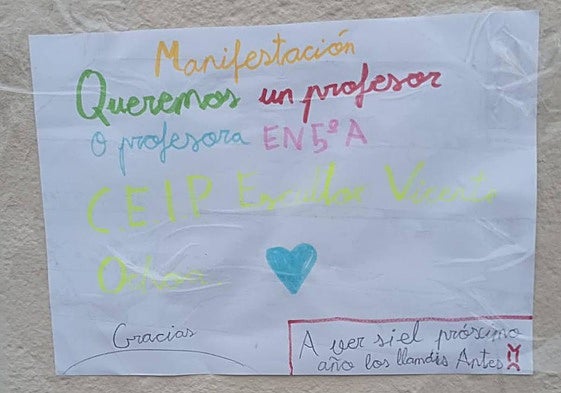 Manifestación
Queremos un profesor
o profesora EN 5º A
C.E.I.P Escultor Vicente
Ochoa
Gracias
A ver si el próximo
año los llamáis Antes!!